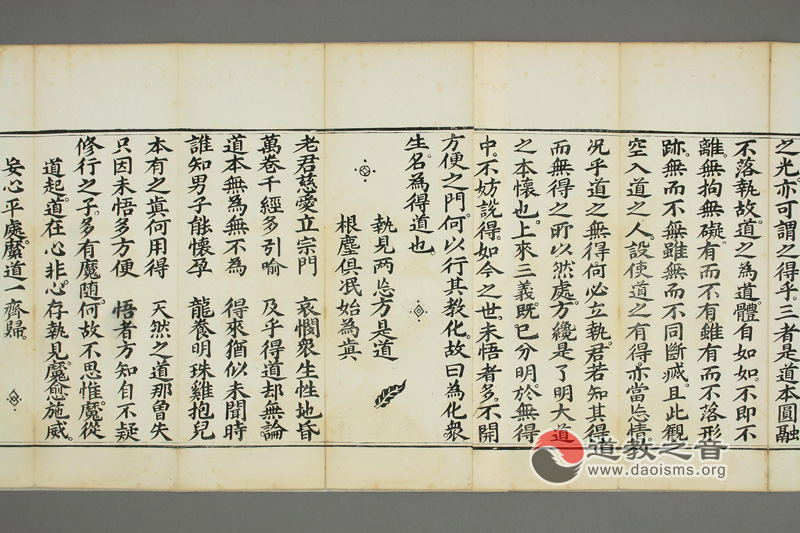 之光。亦可謂之得乎。三者是道本圓融
不落執故。道之為道。體自如如。不即不
離。無拘無礙。有而不有。雖有而不落形
跡。無而不無。雖無而不同斷滅。且此觀
空入道之人。設使道之有得。亦當忘情。
况乎道之無得。何必立執。君若知其得
而無得之所以然處。方纔是了明大道
之本懷也。上來三義。既已分明。於無得
中。不妨說得。如今之世。未悟者多。不開
方便之門。何以行其教化。故曰為化衆
生。名為得道也。
執見两忘方是道
根塵俱泯始為真
老君慈愛立宗門 哀憫衆生性地昏
萬卷千經多引喻 及乎得道却無論
道本無為無不為 得來猶似未聞時
誰知男子能懷孕 龍養明珠雞抱兒
本有之真何用得 天然之道那曾失
只因未悟多方便 悟者方知自不疑
修行之子。多有魔随。何故不思惟。魔從
道起。道在心非。心存執見。魔愈施威。
安心平處。魔道一齊歸。
道教之音
www.daoisms.org